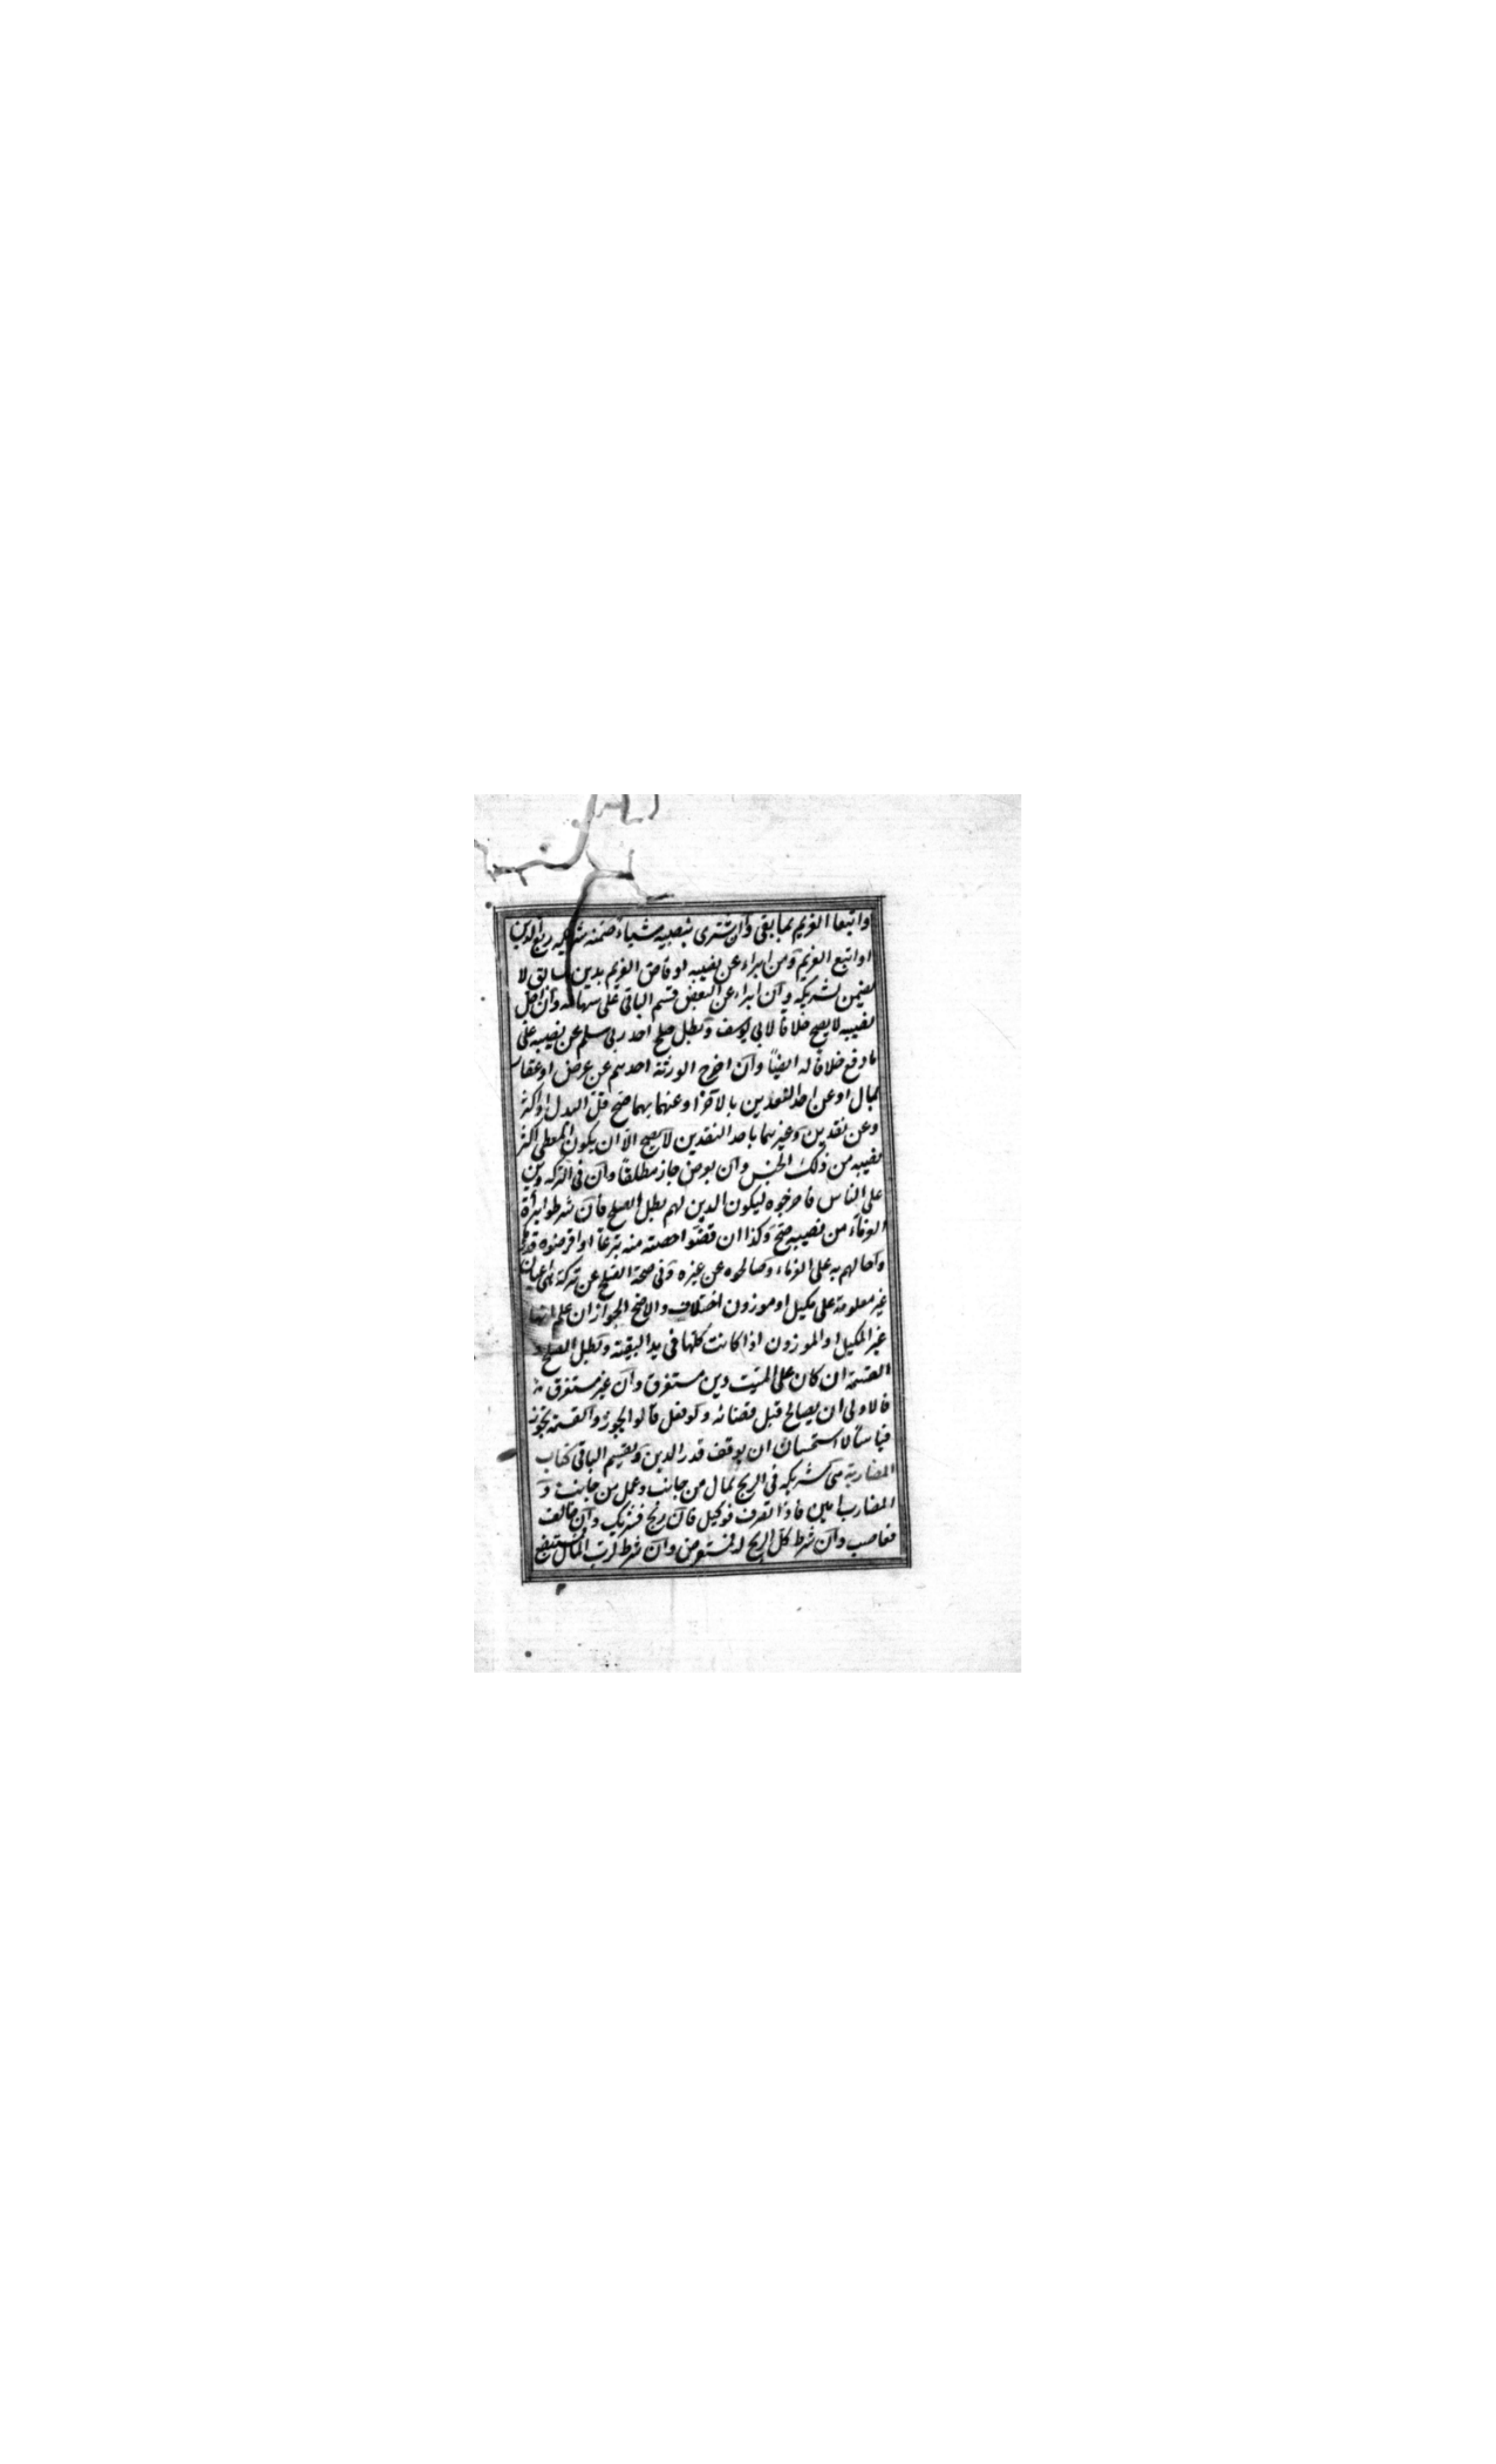 واتبعا الغريم بما بقى وان اشترى بنصيبه شيأ ضمنه شريكه ربع الدين
او اتبع الغريم ومن ابراء عن نصيبه او قاص الغريم بدين سابق لا
يضمن لشريكه وان ابراء عن البعض قسم الباقى على سهامه وان اجل
نصيبه لا يصح خلافا لابى يوسف وبطل صلح احد ربى سلم عن نصيبه على
ما دفع خلافا له ايضا وان اخرج الورثة احدهم عن عرض او عقار
بمال او عن احد النقدين بالآخر او عنهما بهما صح قل البدل او اكثر
وعن نقدين وغيرهما باحد النقدين لا يصح الا ان يكون المعطى اكثر
نصيبه من ذلك الجنس وان بعرض جاز مطلقا وان فى التركة دين
على الناس فاخرجوه ليكون الدين لهم بطل الصلح فان شرطوا براة
الغرماء من نصيبه صح وكذا ان قضوا حصته منه تبرعا او اقرضوه قدرها
واحالهم به على الغرماء وصالحوه عن غيره وفى صحة الصلح عن تركة هى اعيان
غير معلومة على مكيل او موزون اختلاف والاصح الجواز ان علم انها
غير المكيل والموزون اذا كانت كلها فى يد البقية وبطل الصلح
القسمة ان كان على الميت دين مستغرق وان غير مستغرق
فالاولى ان يصالح قبل قضائه ولو فعل قالوا يجوز والقسمة تجوز
قياسا لا استحسانا ان يوقف قدر الدين ويقسم الباقى كتاب
المضاربة هى شركة فى الربح بمال من جانب وعمل من جانب و
المضارب امين فاذا تصرف فوكيل فان ربح فشريك وان خالف
فغاصب وان شرط كل الربح له فمستقرض وان شرط لرب المال فمستبضع